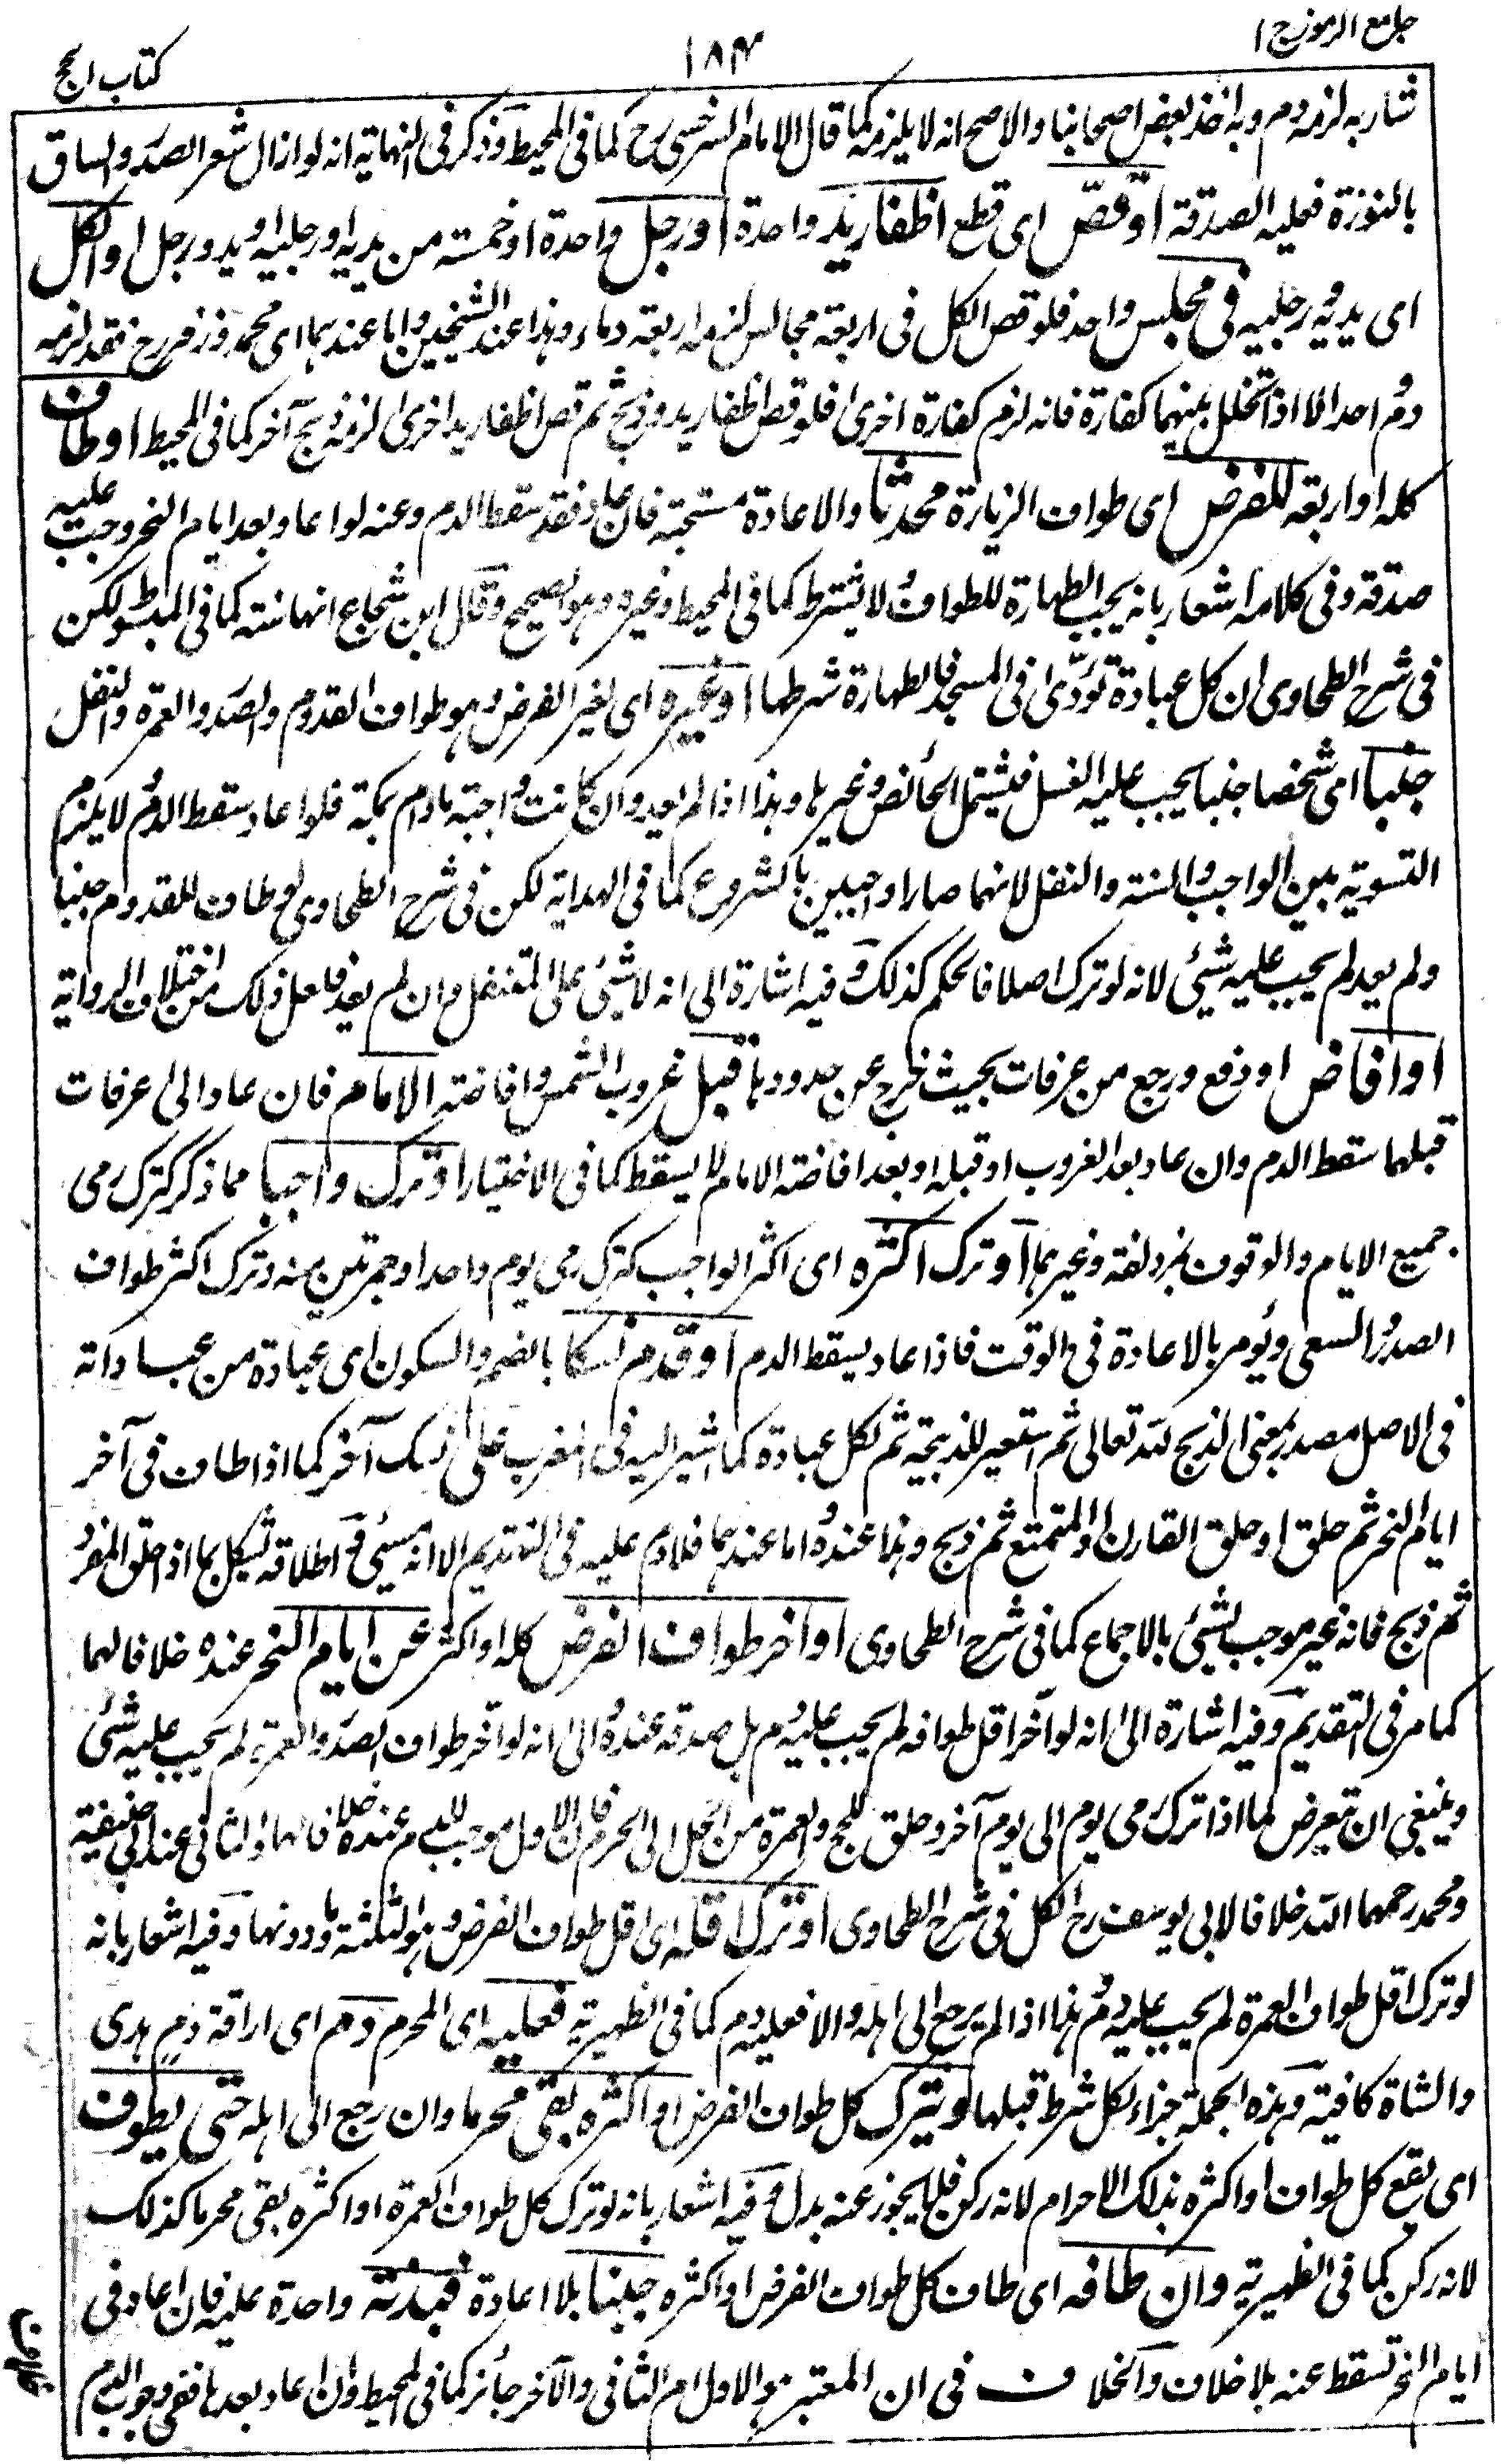 جامع الرموز ج ا
۱۸۴
کتاب الحج
شاربہ لزمہ دم وبہ اخذ بعض اصحابنا والاصح انہ لا یلزمہ کما قال الامام السرخسی رح کما فی المحیط وذکر فی النہایۃ انہ لو ازال شعر الصدر والساق
بالنورۃ فعلیہ الصدقۃ او قص ای قطع اظفار ید واحدۃ او رجل واحدۃ او خمسۃ من یدیہ او رجلیہ او ید ورجل او الکل
ای یدیہ ورجلیہ فی مجلس واحد فلو قص الکل فی اربعۃ مجالس لزمہ اربعۃ دماء وہذا عند الشیخین واما عندہما ای محمد وزفر رح فقد لزمہ
دم واحد الا اذا تخلل بینہما کفارۃ فانہ لزم کفارۃ اخری فلو قص اظفار ید وذبح ثم قص اظفار ید اخری لزمہ ذبح آخر کما فی المحیط او طاف
کلہ او اربعۃ للفرض ای طواف الزیارۃ محدثا والاعادۃ مستحبۃ فان عاد فقد سقط الدم وعنہ لو اعاد بعد ایام النحر وجب علیہ
صدقۃ وفی کلامہ اشعار بانہ یجب الطہارۃ للطواف ولا یشترط کما فی المحیط وغیرہ وہو الصحیح وقال ابن شجاع انہا سنۃ کما فی المبسوط لکن
فی شرح الطحاوی ان کل عبادۃ تؤدی فی المسجد فالطہارۃ شرطہا او غیرہ ای لغیر الفرض وہو طواف القدوم والصدر والعمرۃ والنفل
جنبا ای شخصا جنبا یجب علیہ الغسل فیشتمل الحائض وغیرہا وہذا اذا لم یعد وان کانت واجبۃ مادام بمکۃ فلو اعاد سقط الدم ولا یلزم
التسویۃ بین الواجب والسنۃ والنفل لانہما صارا واجبین بالشروع کما فی الہدایۃ لکن فی شرح الطحاوی لو طاف للقدوم جنبا
ولم یعد لم یجب علیہ شیٔ لانہ لو ترک اصلا فالحکم کذلک وفیہ اشارۃ الی انہ لا شیٔ علی المتنفل وان لم یعد فلعل ذلک من اختلاف الروایۃ
او افاض او دفع ورجع من عرفات بحیث خرج عن حدودہا قبل غروب الشمس وافاضۃ الامام فان عاد الی عرفات
قبلہما سقط الدم وان عاد بعد الغروب او قبلہ او بعد افاضۃ الامام لا یسقط کما فی الاختیار او ترک واجبا مما ذکر کترک رمی
جمیع الایام والوقوف بمزدلفۃ وغیرہما او ترک اکثرہ ای اکثر الواجب کترک رمی یوم واحد او جمرتین منہ وترک اکثر طواف
الصدر والسعی ویؤمر بالاعادۃ فی الوقت فاذا عاد یسقط الدم او قدم نسکا بالضم والسکون ای عبادۃ من عباداتہ
فی الاصل مصدر بمعنی الذبح للہ تعالی ثم استعیر للذبیحۃ ثم لکل عبادۃ کما اشیر الیہ فی المغرب علی نسک آخر کما اذا طاف فی آخر
ایام النحر ثم حلق او حلق القارن او المتمتع ثم ذبح وہذا عندہ واما عندہما فلا دم علیہ فی التقدیم الا انہ مسیٔ و اطلاقہ یشکل بما اذا حلق المفرد
ثم ذبح فانہ غیر موجب لشیٔ بالاجماع کما فی شرح الطحاوی او اخر طواف الفرض کلہ او اکثرہ عن ایام النحر عندہ خلافا لہما
کما مر فی التقدیم وفیہ اشارۃ الی انہ لو آخر اقل طوافہ لم یجب علیہ دم بل صدقۃ عندہ والی انہ لو آخر طواف الصدر والعمرۃ لم یجب علیہ شیٔ
وینبغی ان یتعرض لما اذا ترک رمی یوم الی یوم آخر وحلق للحج والعمرۃ من الحل الی الحرم فان الاول موجب للدم عندہ خلافا لہما والثانی عند ابی حنیفۃ
ومحمد رحمہما اللہ خلافا لابی یوسف رح الکل فی شرح الطحاوی او ترک اقلہ ای اقل طواف الفرض وہو الثلثۃ وما دونہا وفیہ اشعار بانہ
لو ترک اقل طواف العمرۃ لم یجب علیہ دم وہذا اذا لم یرجع الی اہلہ والا فعلیہ دم کما فی الظہیریۃ فعلیہ ای المحرم دم ای اراقۃ دم ہدی
والشاۃ کافیۃ وہذہ الجملۃ جزاء لکل شرط قبلہا ولو بترک کل طواف الفرض او اکثرہ بقی محرما وان رجع الی اہلہ حتی یطوف
ای یقع کل طواف او اکثرہ بذلک الاحرام لانہ رکن فلا یجوز عنہ بدل وفیہ اشعار بانہ لو ترک کل طواف العمرۃ او اکثرہ بقی محرما کذلک
لانہ رکن کما فی الظہیریۃ وان طافہ ای طاف کل طواف الفرض او اکثرہ جنبا بلا اعادۃ فبدنۃ واحدۃ علیہ فان اعاد فی
ایام النحر تسقط عنہ بلا خلاف والخلاف فی ان المعتبر ہو الاول ام الثانی والآخر جائز کما فی المحیط وان اعاد بعدہا ففی وجوب الدم
خلاف